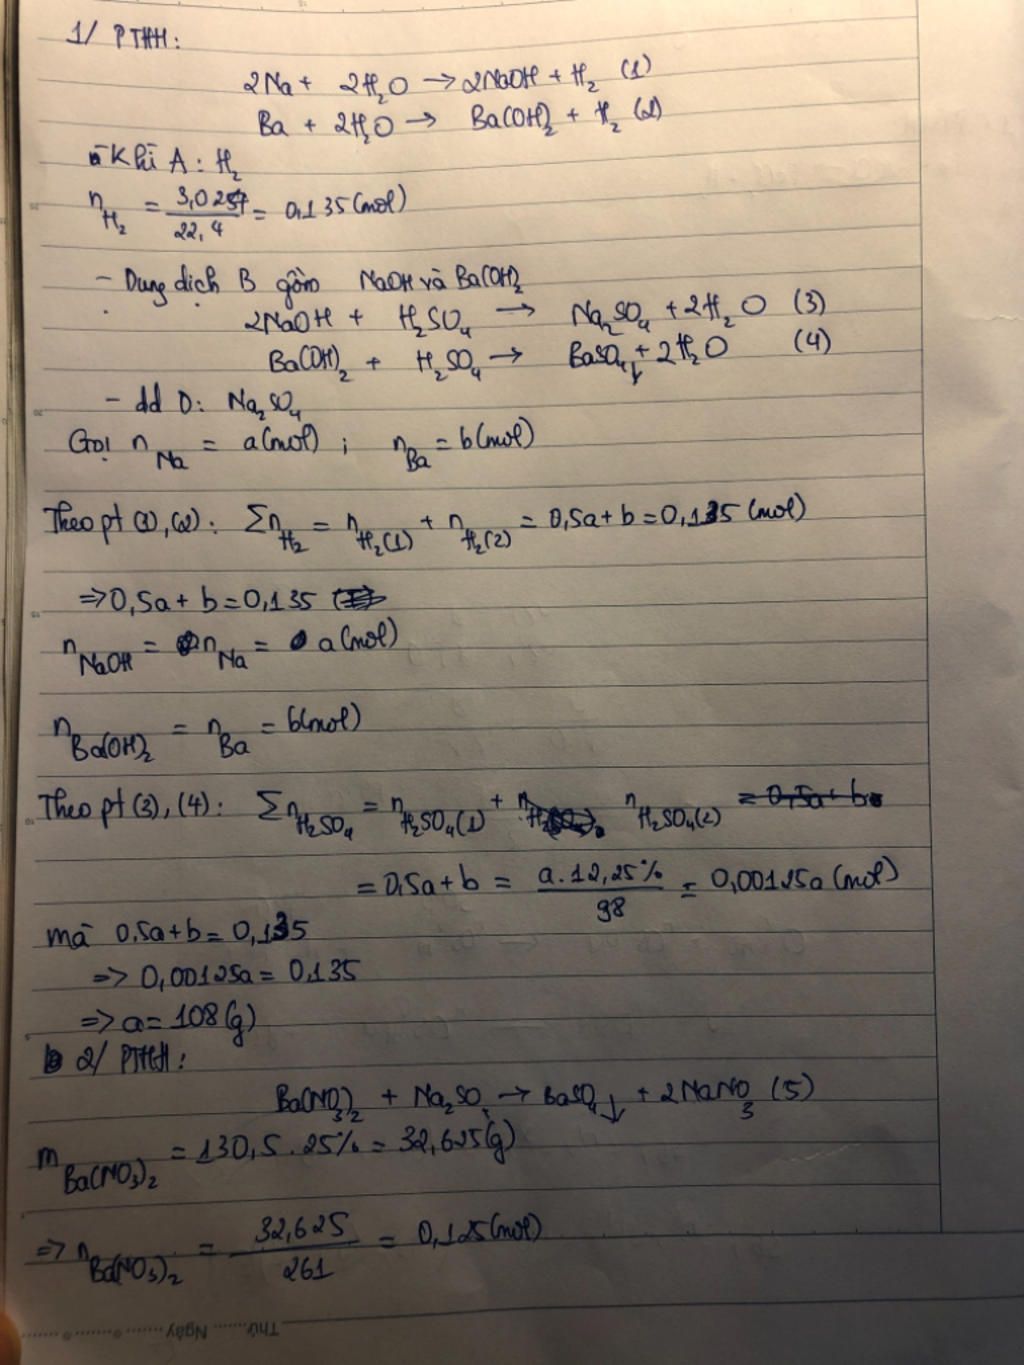 1/ PTHH:
2Na + 2H₂O → 2NaOH + H₂ (1)
Ba + 2H₂O → Ba(OH)₂ + H₂ (2)
- Khí A: H₂
n_H₂ = 3,024/22,4 = 0,135 (mol)
- Dung dịch B gồm NaOH và Ba(OH)₂
2NaOH + H₂SO₄ → Na₂SO₄ + 2H₂O (3)
Ba(OH)₂ + H₂SO₄ → BaSO₄↓ + 2H₂O (4)
- dd D: Na₂SO₄
Gọi n_Na = a (mol) ; n_Ba = b (mol)
Theo pt (1), (2): Σn_H₂ = n_H₂(1) + n_H₂(2) = 0,5a + b = 0,135 (mol)
⇒ 0,5a + b = 0,135
n_NaOH = n_Na = a (mol)
n_Ba(OH)₂ = n_Ba = b (mol)
Theo pt (3), (4): Σn_H₂SO₄ = n_H₂SO₄(1) + n_H₂SO₄(2) = 0,5a + b
= 0,5a + b = a.12,25%/98 = 0,00125a (mol)
mà 0,5a + b = 0,135
⇒ 0,00125a = 0,135
⇒ a = 108 (g)
2/ PTHH:
Ba(NO₃)₂ + Na₂SO₄ → BaSO₄↓ + 2NaNO₃ (5)
m_Ba(NO₃)₂ = 130,5.25% = 32,625 (g)
⇒ n_Ba(NO₃)₂ = 32,625/261 = 0,125 (mol)
Thứ....... Ngày